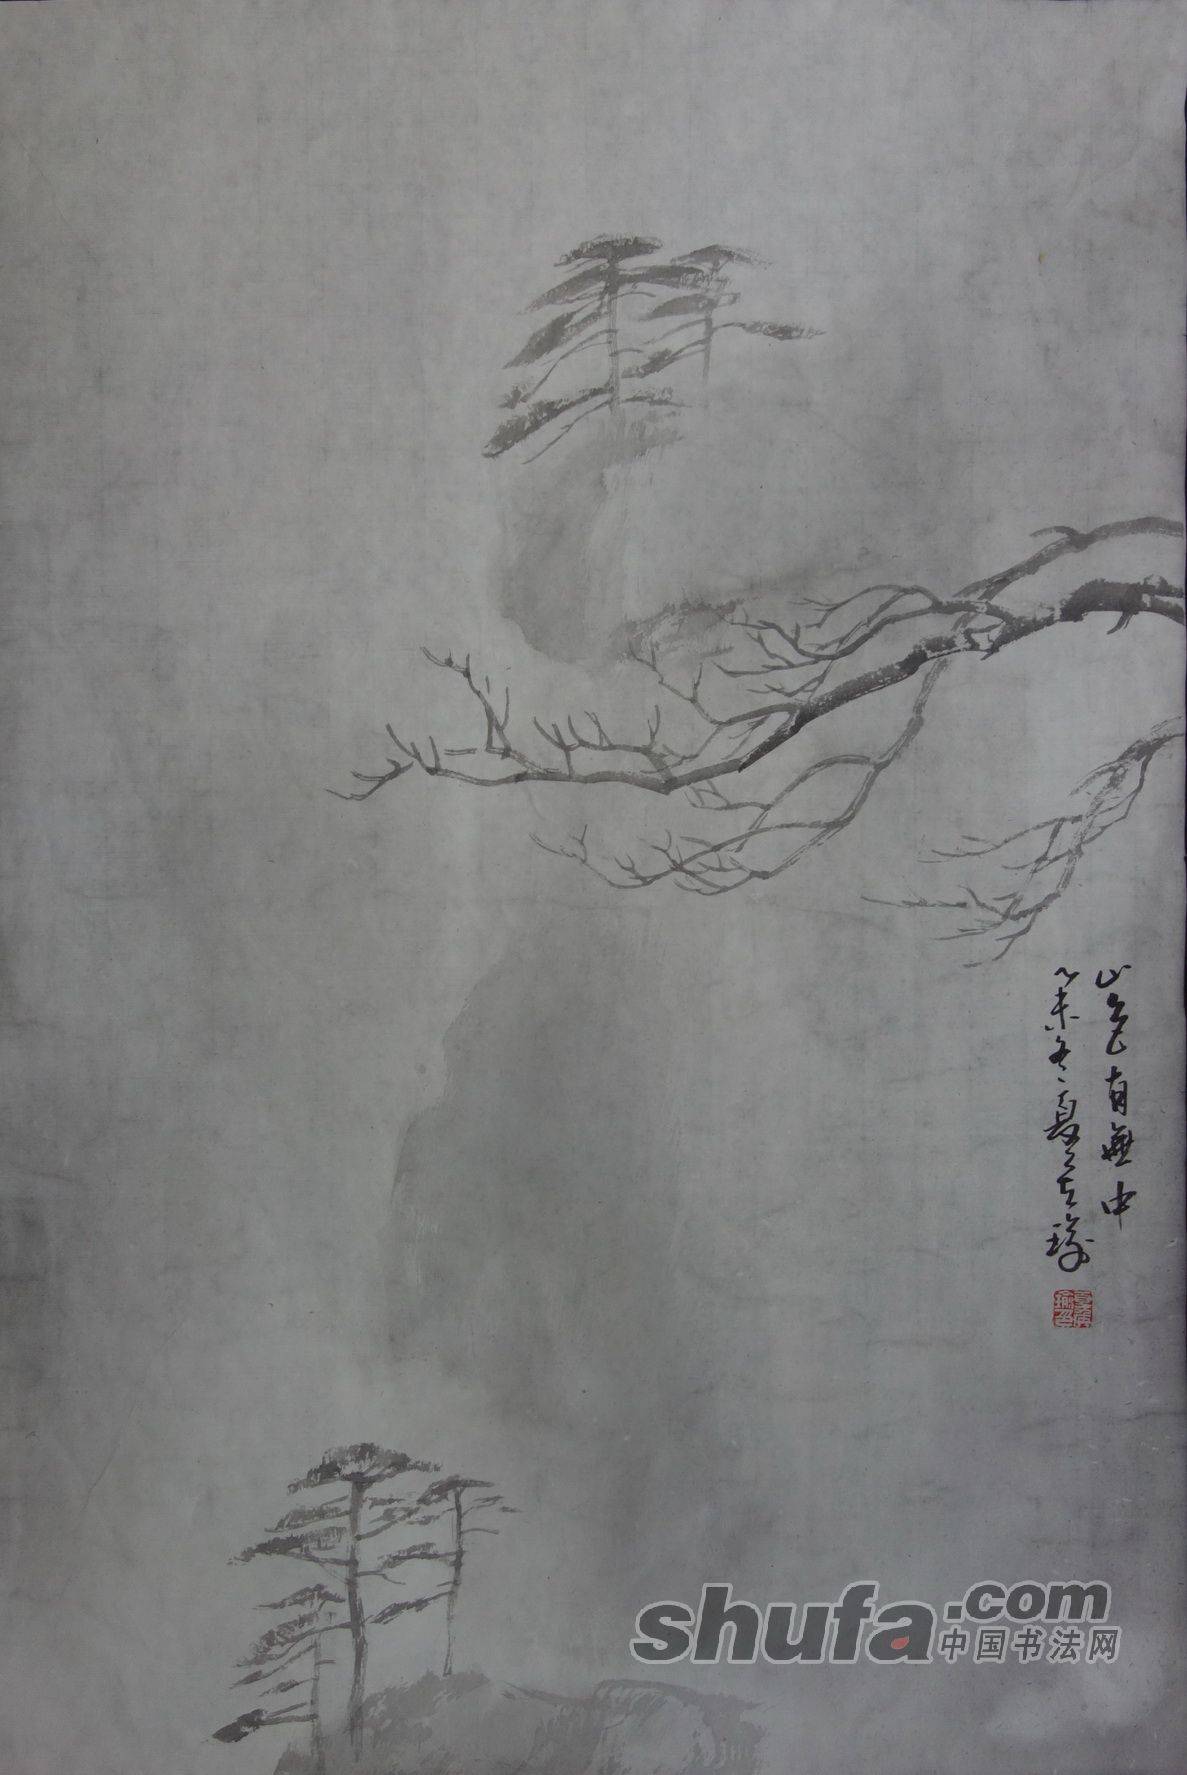 山色有無中
乙未冬夏
shufa.com
中国书法网